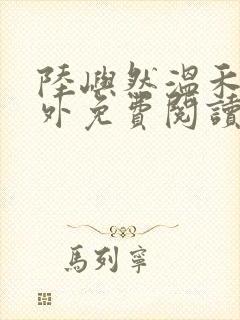 陸嶼然溫禾
外免費閱讀
馬列寧